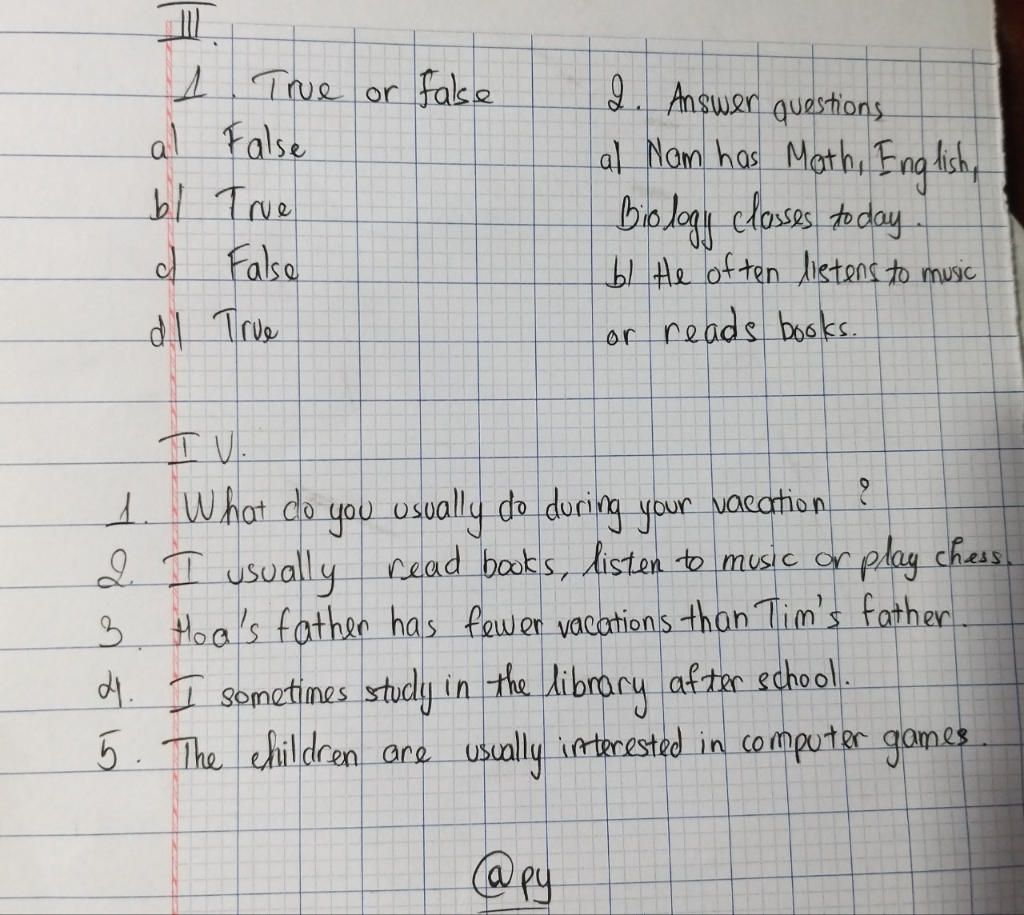 III.
1. True or false
a) False
b) True
c) False
d) True
2. Answer questions
a) Nam has Math, English,
Biology classes today.
b) He often listens to music
or reads books.
IV.
1. What do you usually do during your vacation ?
2. I usually read books, listen to music or play chess.
3. Hoa's father has fewer vacations than Tim's father.
4. I sometimes study in the library after school.
5. The children are usually interested in computer games.
@py